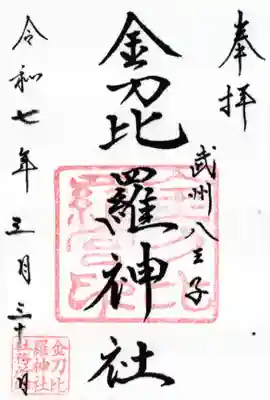 奉拝
武州八王子
金刀比羅神社
令和七年三月三十日
金刀比
羅神社